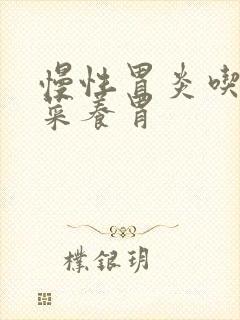 慢性胃炎喫
菜養胃
樸銀玥